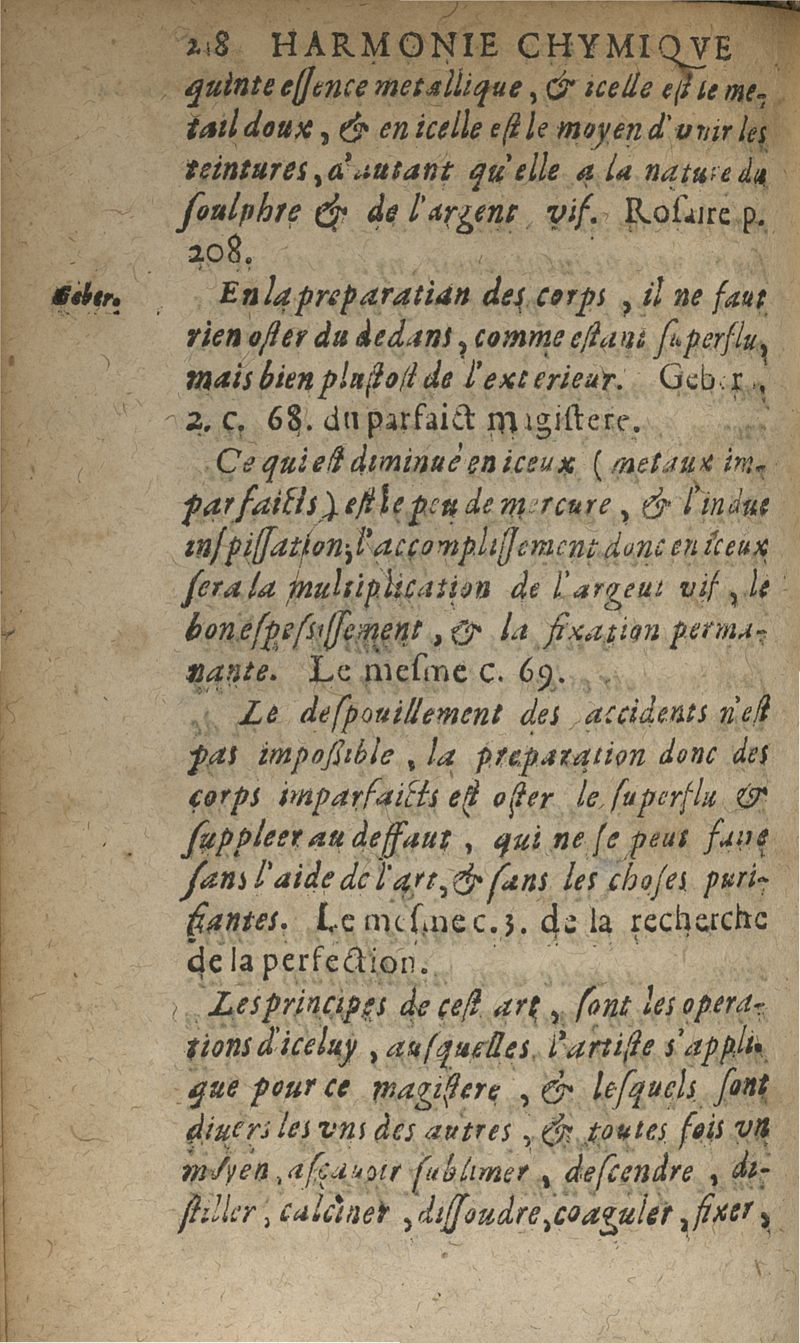 218 HARMONIE CHYMIQVE
quinte eſſence metallique, & icelle eſt le me-
tail doux, & en icelle eſt le moyen d'vnir les
teintures, d'autant qu'elle a la nature du
ſoulphre & de l'argent vif. Roſaire p.
208.
Geber.
En la preparatian des corps, il ne faut
rien oſter du dedans, comme eſtant ſuperflu,
mais bien pluſtoſt de l'exterieur. Geber.,
2. c. 68. du parfaict magiſtere.
Ce qui eſt diminué en iceux (metaux im-
parfaicts) eſt le peu de mercure, & l'indue
inſpiſſation; l'accompliſſement donc en iceux
ſera la multiplication de l'argeut vif, le
bon eſpeſsiſſement, & la fixation perma-
nante. Le meſme c. 69.
Le deſpouillement des accidents n'eſt
pas impoſsible, la preparation donc des
corps imparfaicts eſt oſter le ſuperflu &
ſuppleer au deffaut, qui ne ſe peut faire
ſans l'aide de l'art, & ſans les choſes puri-
fiantes. Le meſme c. 3. de la recherche
de la perfection.
Les principes de ceſt art, ſont les opera-
tions d'iceluy, auſquelles l'artiſte s'appli-
que pour ce magiſtere, & leſquels ſont
diuers les vns des autres, & toutes fois vn
moyen, aſçauoir ſublimer, deſcendre, di-
ſtiller, calciner, diſſoudre, coaguler, fixer,